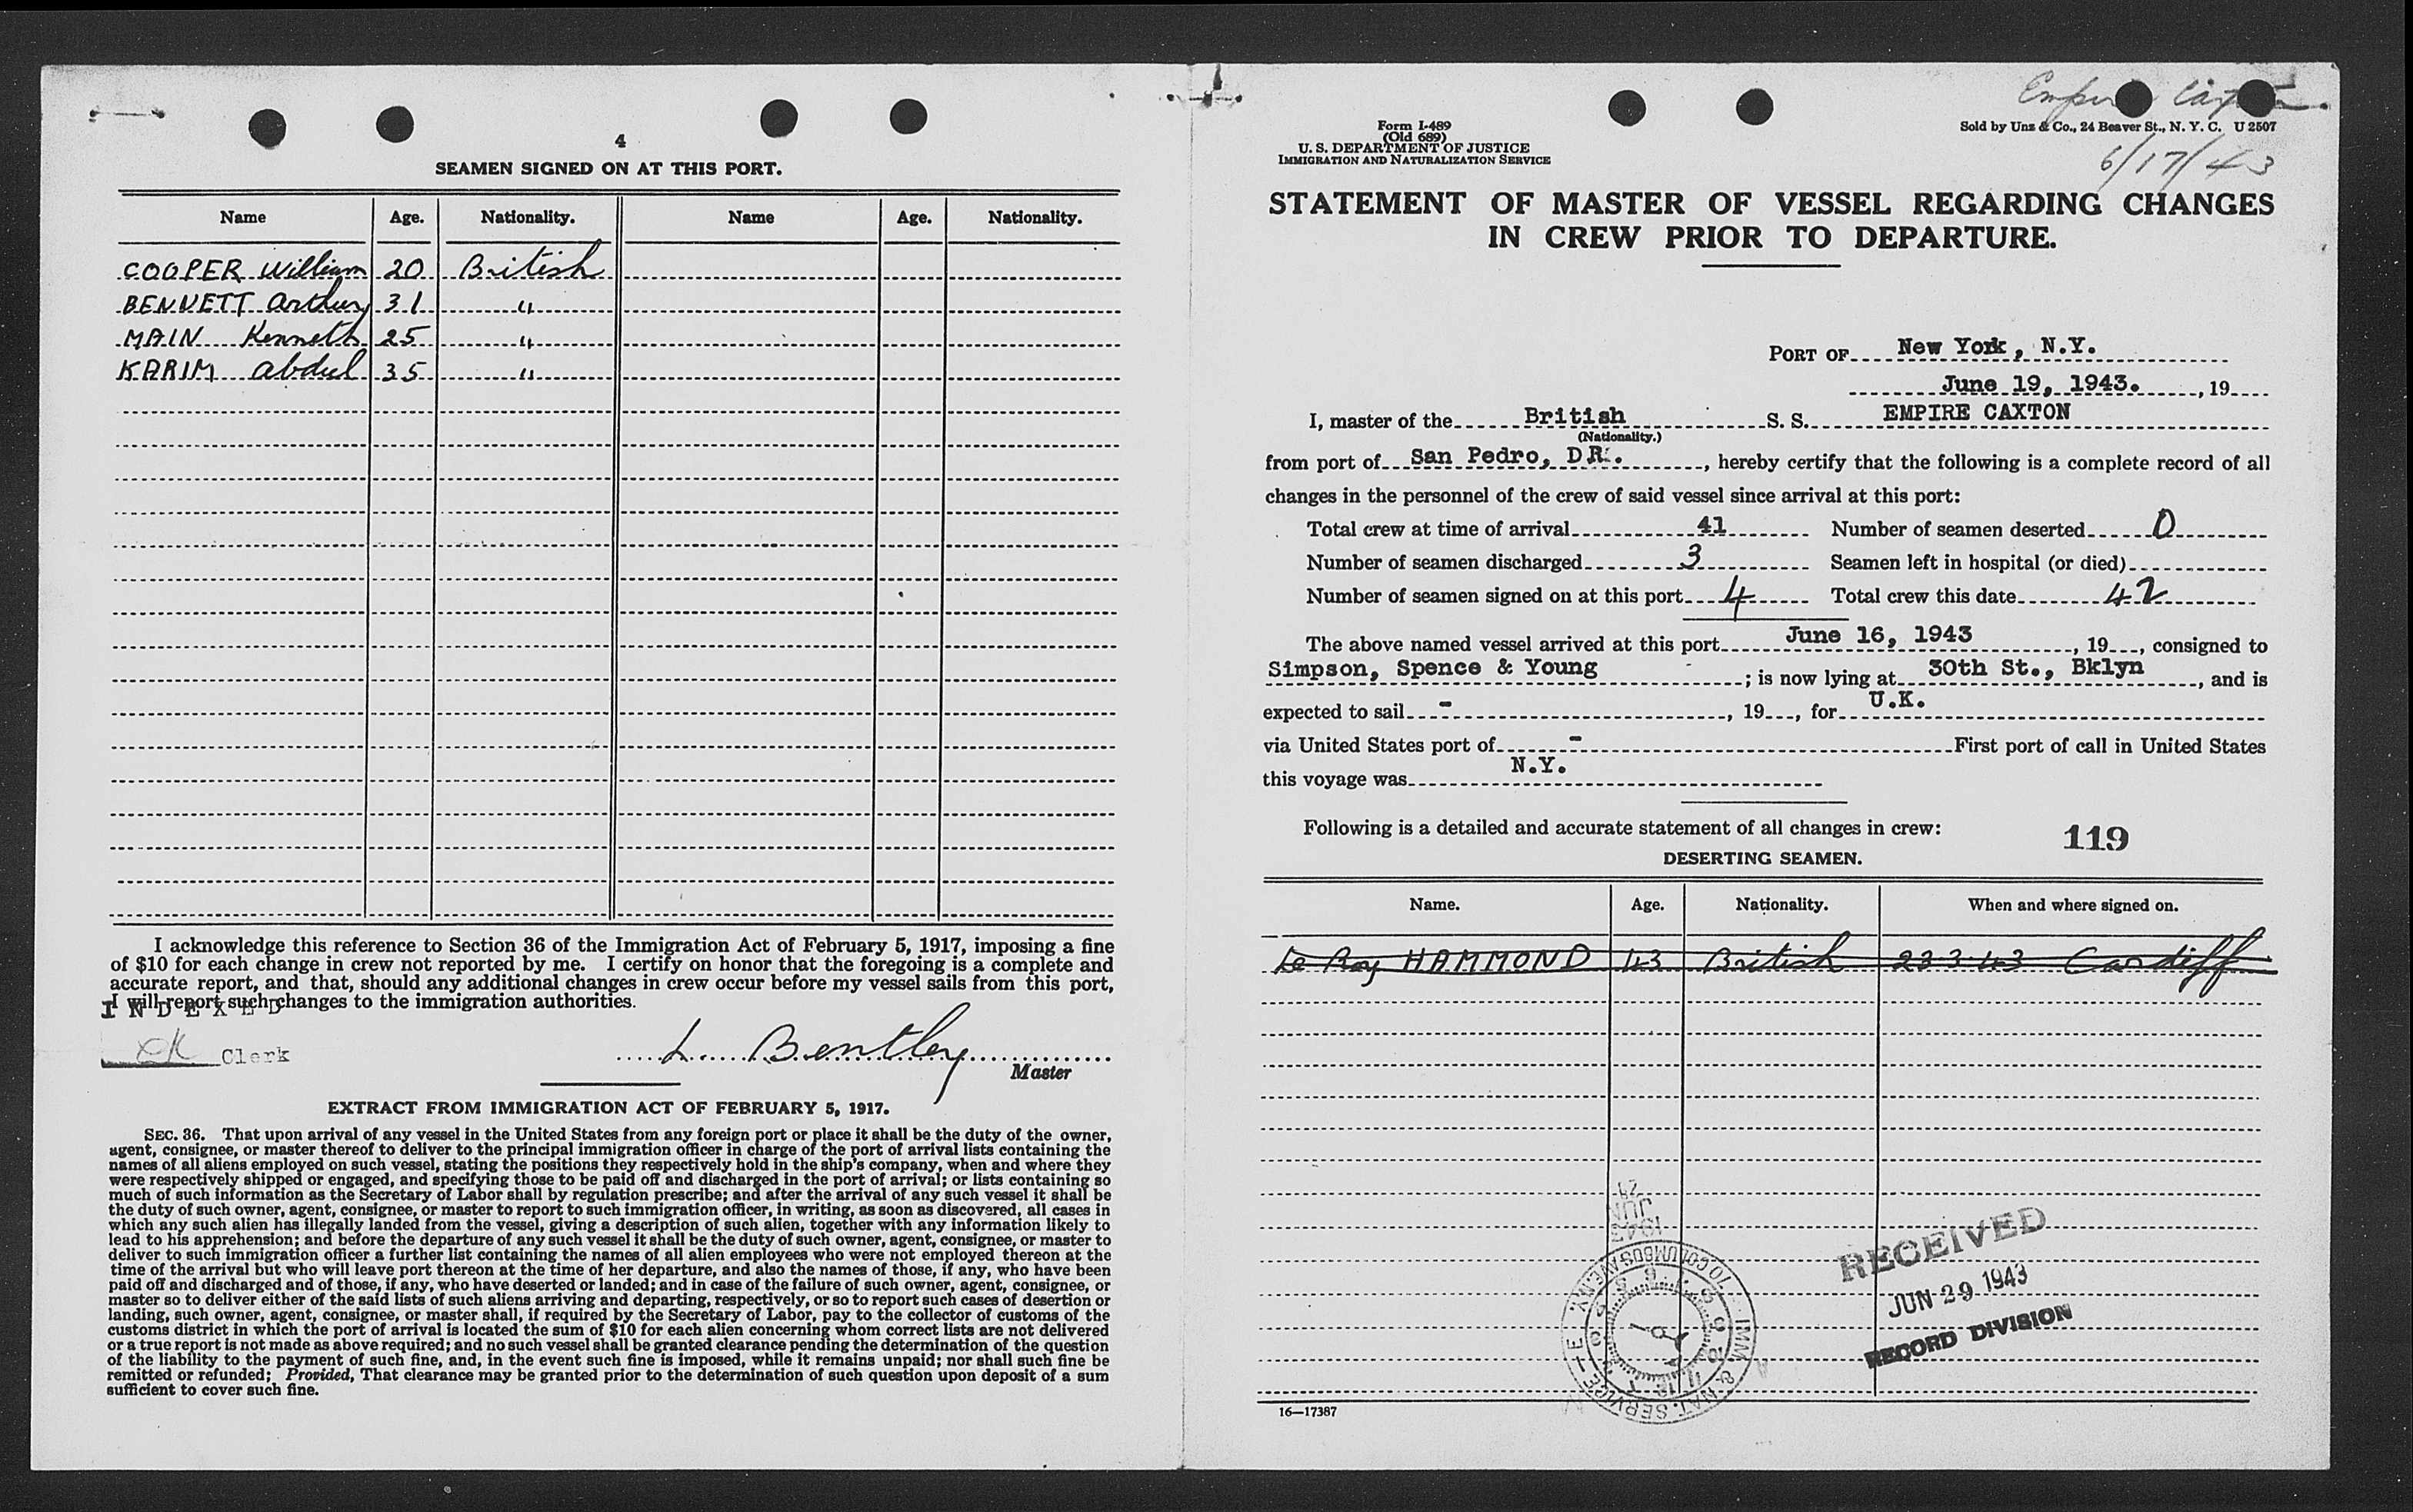 4
SEAMEN SIGNED ON AT THIS PORT.
Name Age. Nationality. Name Age. Nationality.
COOPER William 20 British
BENNETT Arthur 31 "
MAIN Kenneth 25 "
KARIM Abdul 35 "
I acknowledge this reference to Section 36 of the Immigration Act of February 5, 1917, imposing a fine
of $10 for each change in crew not reported by me. I certify on honor that the foregoing is a complete and
accurate report, and that, should any additional changes in crew occur before my vessel sails from this port,
I will report such changes to the immigration authorities.
INDEXED
Clerk
L. Bentley
Master
EXTRACT FROM IMMIGRATION ACT OF FEBRUARY 5, 1917.
SEC. 36. That upon arrival of any vessel in the United States from any foreign port or place it shall be the duty of the owner,
agent, consignee, or master thereof to deliver to the principal immigration officer in charge of the port of arrival lists containing the
names of all aliens employed on such vessel, stating the positions they respectively hold in the ship's company, when and where they
were respectively shipped or engaged, and specifying those to be paid off and discharged in the port of arrival; or lists containing so
much of such information as the Secretary of Labor shall by regulation prescribe; and after the arrival of any such vessel it shall be
the duty of such owner, agent, consignee, or master to report to such immigration officer, in writing, as soon as discovered, all cases in
which any such alien has illegally landed from the vessel, giving a description of such alien, together with any information likely to
lead to his apprehension; and before the departure of any such vessel it shall be the duty of such owner, agent, consignee, or master to
deliver to such immigration officer a further list containing the names of all alien employees who were not employed thereon at the
time of the arrival but who will leave port thereon at the time of her departure, and also the names of those, if any, who have been
paid off and discharged and of those, if any, who have deserted or landed; and in case of the failure of such owner, agent, consignee, or
master so to deliver either of the said lists of such aliens arriving and departing, respectively, or so to report such cases of desertion or
landing, such owner, agent, consignee, or master shall, if required by the Secretary of Labor, pay to the collector of customs of the
customs district in which the port of arrival is located the sum of $10 for each alien concerning whom correct lists are not delivered
or a true report is not made as above required; and no such vessel shall be granted clearance pending the determination of the question
of the liability to the payment of such fine, and, in the event such fine is imposed, while it remains unpaid; nor shall such fine be
remitted or refunded; Provided, That clearance may be granted prior to the determination of such question upon deposit of a sum
sufficient to cover such fine.
Form I-489
(Old 689)
U. S. DEPARTMENT OF JUSTICE
IMMIGRATION AND NATURALIZATION SERVICE
Sold by Unz & Co., 24 Beaver St., N. Y. C. U 2507
6/17/43
STATEMENT OF MASTER OF VESSEL REGARDING CHANGES
IN CREW PRIOR TO DEPARTURE.
PORT OF New York, N.Y.
June 19, 1943. , 19
I, master of the British S. S. EMPIRE CAXTON
(Nationality.)
from port of San Pedro, DR. , hereby certify that the following is a complete record of all
changes in the personnel of the crew of said vessel since arrival at this port:
Total crew at time of arrival 41 Number of seamen deserted 0
Number of seamen discharged 3 Seamen left in hospital (or died)
Number of seamen signed on at this port 4 Total crew this date 42
The above named vessel arrived at this port June 16, 1943 , 19 , consigned to
Simpson, Spence & Young ; is now lying at 30th St., Bklyn , and is
expected to sail - , 19 , for U.K.
via United States port of - First port of call in United States
this voyage was N.Y.
Following is a detailed and accurate statement of all changes in crew:
119
DESERTING SEAMEN.
Name. Age. Nationality. When and where signed on.
Le Roy HAMMOND 43 British 23 3 43 Cardiff
29
JUN
1943
IMM. & NAT. SERVICE 70 COLUMBUS AVE N.Y.
RECEIVED
JUN 29 1943
RECORD DIVISION
16—17387